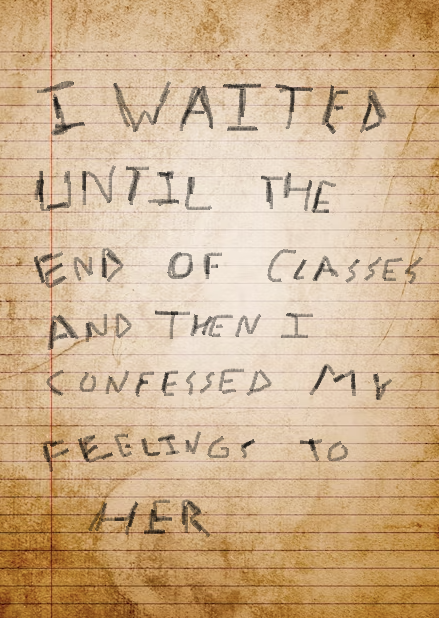 I WAITED
UNTIL THE
END OF CLASSES
AND THEN I
CONFESSED MY
FEELINGS TO
HER